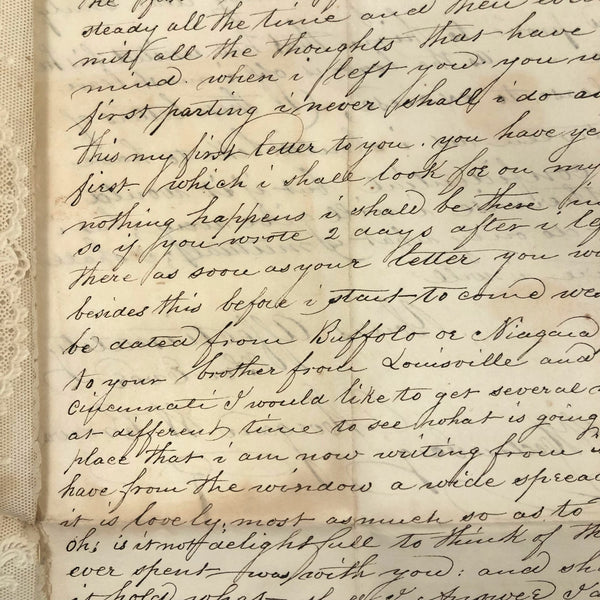 the
steady all the time and then
mit all the thoughts that have
mind. when i left you. you
first parting i never shall i do
this my first letter to you. you have ye
first, which i shall look for on my
nothing happens i shall be there in
so if you wrote 2 days after i
there as soon as your letter you
besides this before i start to come
be dated from Buffolo or Niagara
to your brother from Louisville and
Cincinnati I would like to get several
at different time to see what is going
place that i am now writing from
have from the window a wide sprea
it is lovely, most as much so as to
Oh; is it not delightfull to think of th
ever spent was with you; and sh
it hold what I Answer